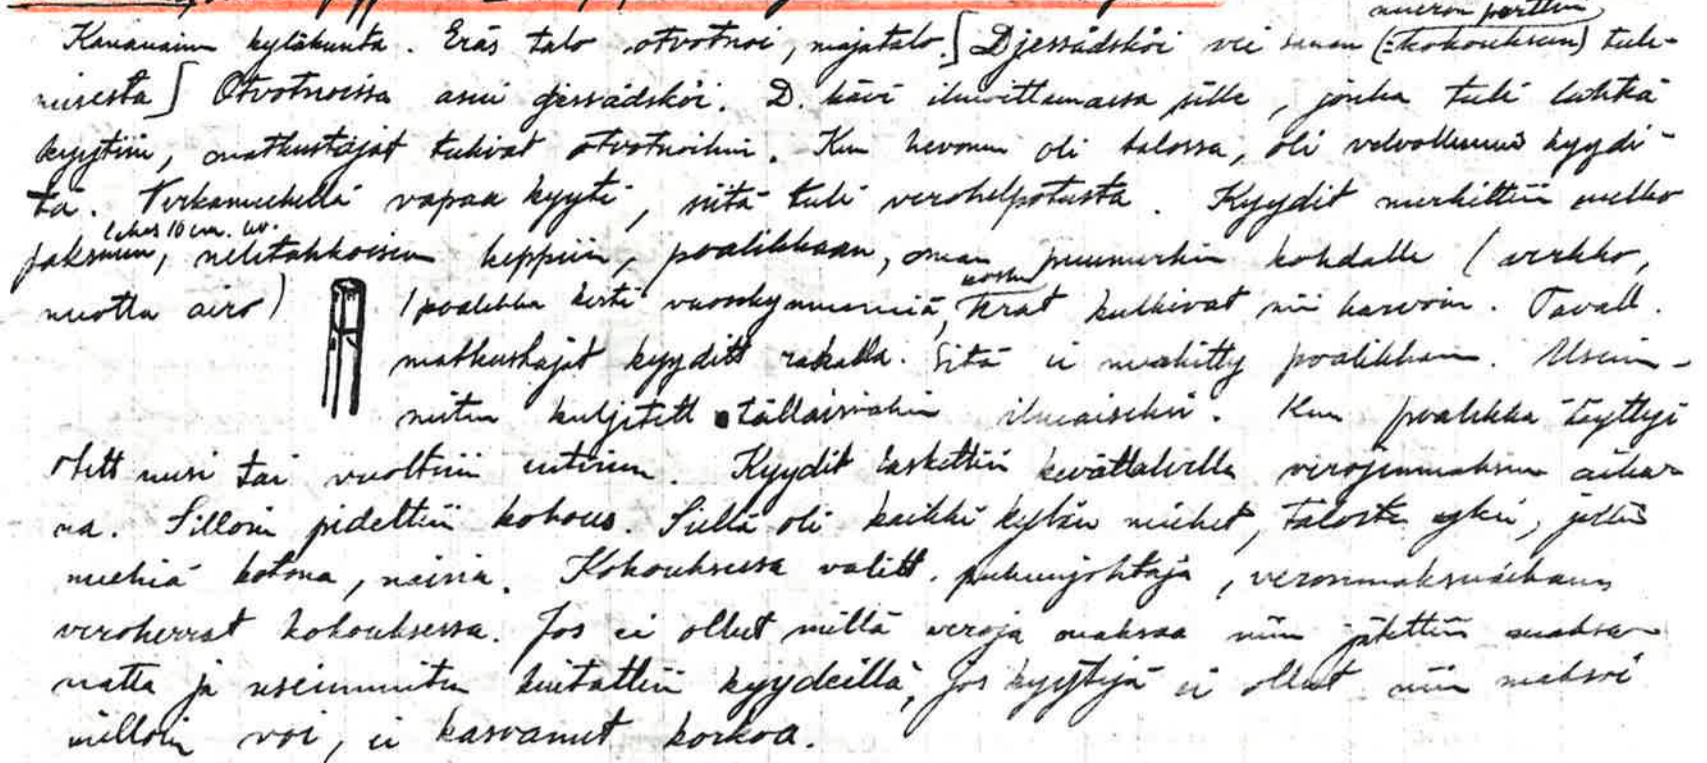 mieron perttiin
Kananainen kyläkunta. Eräs talo otvotnoi, majatalo. [Djessädsköi vei sanan (=kokouksen) tule-
misesta] Otvotnoissa asui djessädsköi. D. kävi ilmoittamassa sille, jonka tuli lähteä
kyytiin, matkustajat tulivat otvotnoihin. Kun hevonen oli talossa, oli velvollisuus kyydi-
tä. Virkamiehellä vapaa kyyti, siitä tuli verohelpotusta. Kyydit merkittiin melko
lähes 10 cm. lev.
paksuun, nelitahkoiseen keppiin, poalikkaan, oman puumerkin kohdalle (verkko,
nuotta airo) (poalikka kesti vuosikymmeniä, koska herrat kulkivat niin harvoin. Tavall.
matkustajat kyyditt rahalla. Sitä ei merkitty poalikkaan. Usein-
miten kuljetett tällaisiakin ilmaiseksi. Kun poalikka täyttyi
otett uusi tai vuoltiin entinen. Kyydit laskettiin kevättalvella verojenmaksun aika-
na. Silloin pidettiin kokous. Siellä oli kaikki kylän miehet, talosta yksi, jollei
miehiä kotona, naisia. Kokouksessa valitt. puheenjohtaja, veronmaksuaikana
veroherrat kokouksessa. Jos ei ollut millä veroja maksaa niin jätettiin maksa-
matta ja useimmiten kuitattiin kyydeillä, Jos kyytejä ei ollut niin maksoi
milloin voi, ei kasvanut korkoa.